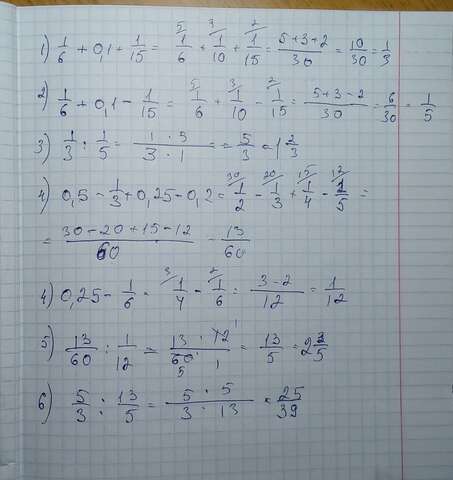 1) 1/6 + 0,1 + 1/15 = 1/6 ⁵⁄ + 1/10 ³⁄ + 1/15 ²⁄ = (5+3+2)/30 = 10/30 = 1/3
2) 1/6 + 0,1 - 1/15 = 1/6 ⁵⁄ + 1/10 ³⁄ - 1/15 ²⁄ = (5+3-2)/30 = 6/30 = 1/5
3) 1/3 : 1/5 = (1 · 5)/(3 · 1) = 5/3 = 1 2/3
4) 0,5 - 1/3 + 0,25 - 0,2 = 1/2 ³⁰⁄ - 1/3 ²⁰⁄ + 1/4 ¹⁵⁄ - 1/5 ¹²⁄ =
= (30-20+15-12)/60 = 13/60
4) 0,25 - 1/6 = 1/4 ³⁄ - 1/6 ²⁄ = (3-2)/12 = 1/12
5) 13/60 : 1/12 = (13 · 12 ¹)/(60 ₅ · 1) = 13/5 = 2 3/5
6) 5/3 : 13/5 = (5 · 5)/(3 · 13) = 25/39